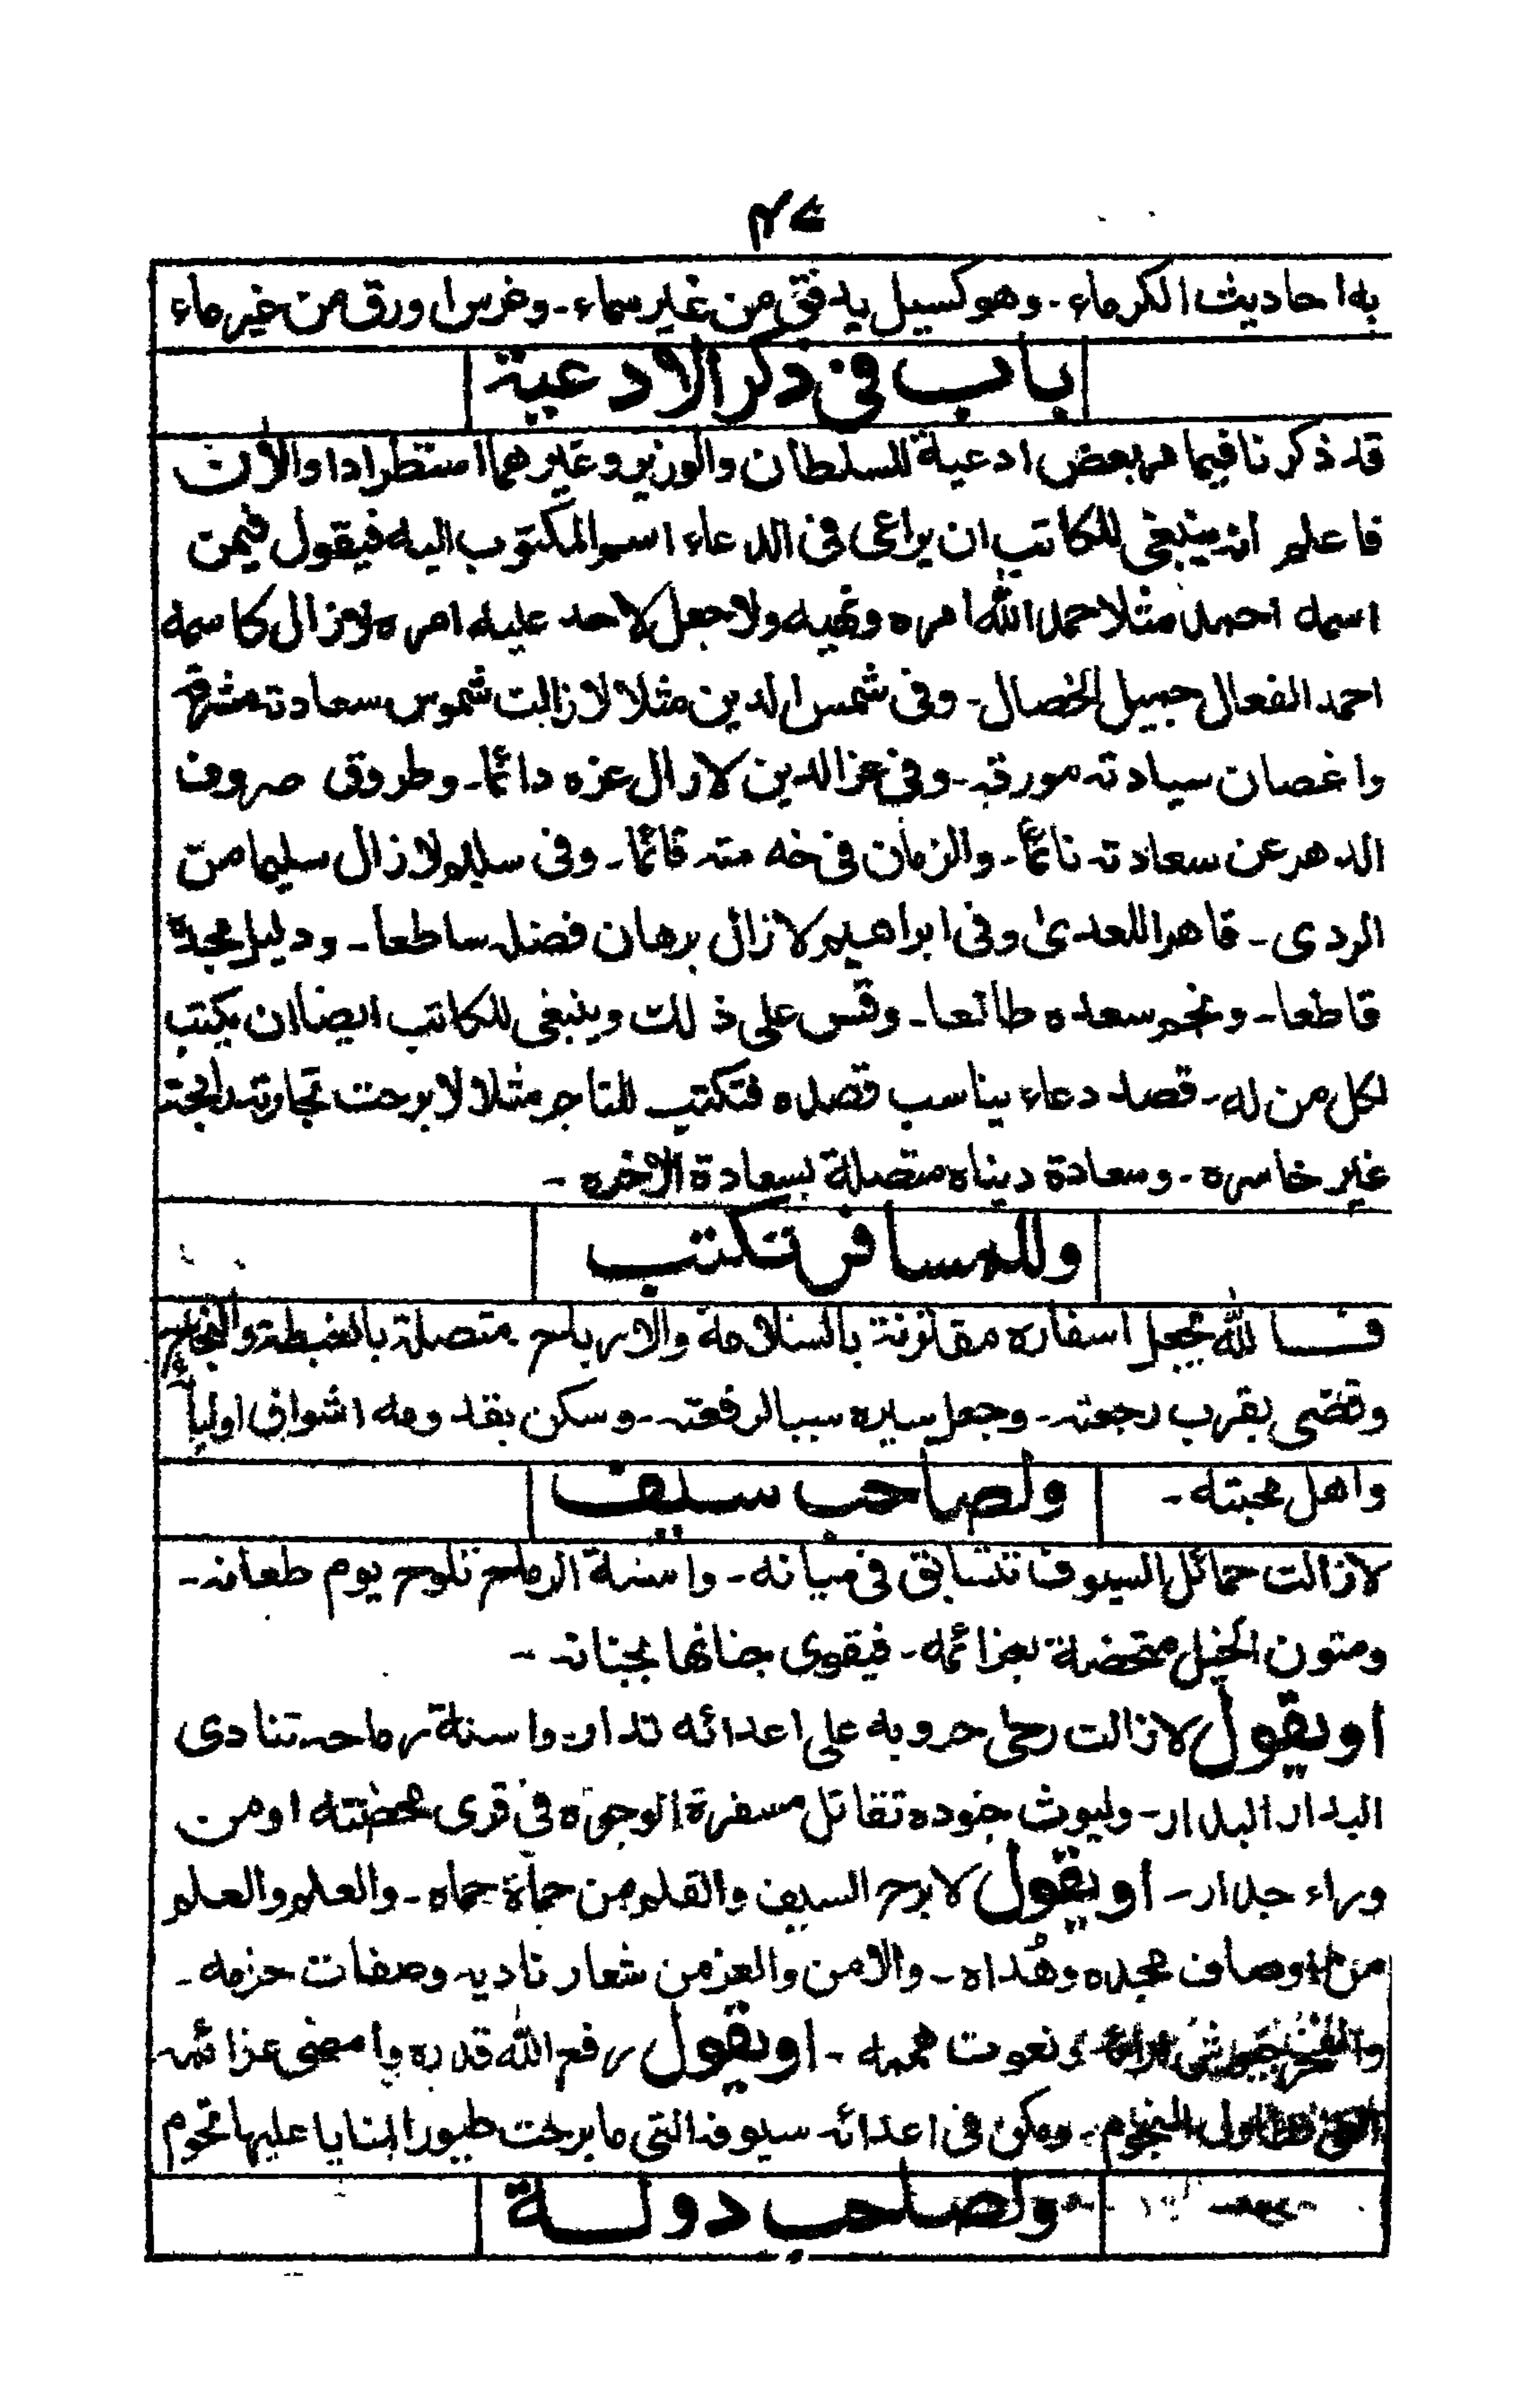 ۴۷
به احاديث الكرماء - وهو كسيل يدفق من غير سماء - وغرس اورق من غير ماء
باب فى ذكر الادعية
قد ذكرنا فيما مر بعض ادعية للسلطان والوزير وغيرهما استطرادا والأن
فاعلم انه ينبغى للكاتب ان يراعى فى الدعاء اسم المكتوب اليه فيقول فيمن
اسمه احمد مثلا حمد الله امره ونهيه ولا جعل لاحد عليه امره لازال كاسمه
احمد الفعال جميل الخصال - وفى شمس الدين مثلا لا زالت شموس سعادته مشرقه
واغصان سيادته مورقه - وفى عز الدين لازال عزه دائما - وطروق صروف
الدهر عن سعادته نائما - والزمان فى خدمته قائما - وفى سليم لا زال سليما من
الردى - قاهرا للعدىٰ وفى ابراهيم لا زال برهان فضله ساطعا - ودليل مجده
قاطعا - ونجم سعده طالعا - وقس على ذلك وينبغى للكاتب ايضا ان يكتب
لكل من له قصد دعاء يناسب قصده فتكتب للتاجر مثلا لا برحت تجارته رابحة
غير خاسره - وسعادة دنياه متصلة بسعادة الاخره -
وللمسافر تكتب
فالله يجعل اسفاره مقترنة بالسلامة والارباح متصلة بالغبطة والنجاح
وقضى بقرب رجعته - وجعل سيره سببا لرفعته - وسكن بقدومه اشواق اوليائه
واهل محبته -
ولصاحب سيف
لا زالت حمائل السيوف تتسابق فى ميدانه - واسنة الرماح تلوح يوم طعانه -
ومتون الخيل بعزائمه - فيقوى جنانها بجنانه -
او يقول لا زالت رحى حروبه على اعدائه تدار واسنة رماحه تنادى
البدار البدار - وليوث جنوده تقاتل مسفرة الوجوه فى قرى محصنته او من
وراء جدار - او يقول لا برح السيف والقلم من حماة حماه - والعلم والعلم
من اوصاف مجده وهُداه - والامن والعز من شعار ناديه وصفات حزمه -
ونعوت هممه - او يقول رفع الله قدره وامضى عزائمه
النجوم - ومكن فى اعدائه سيوفه التى ما برحت طيور المنايا عليها تحوم
ولصاحب دولة